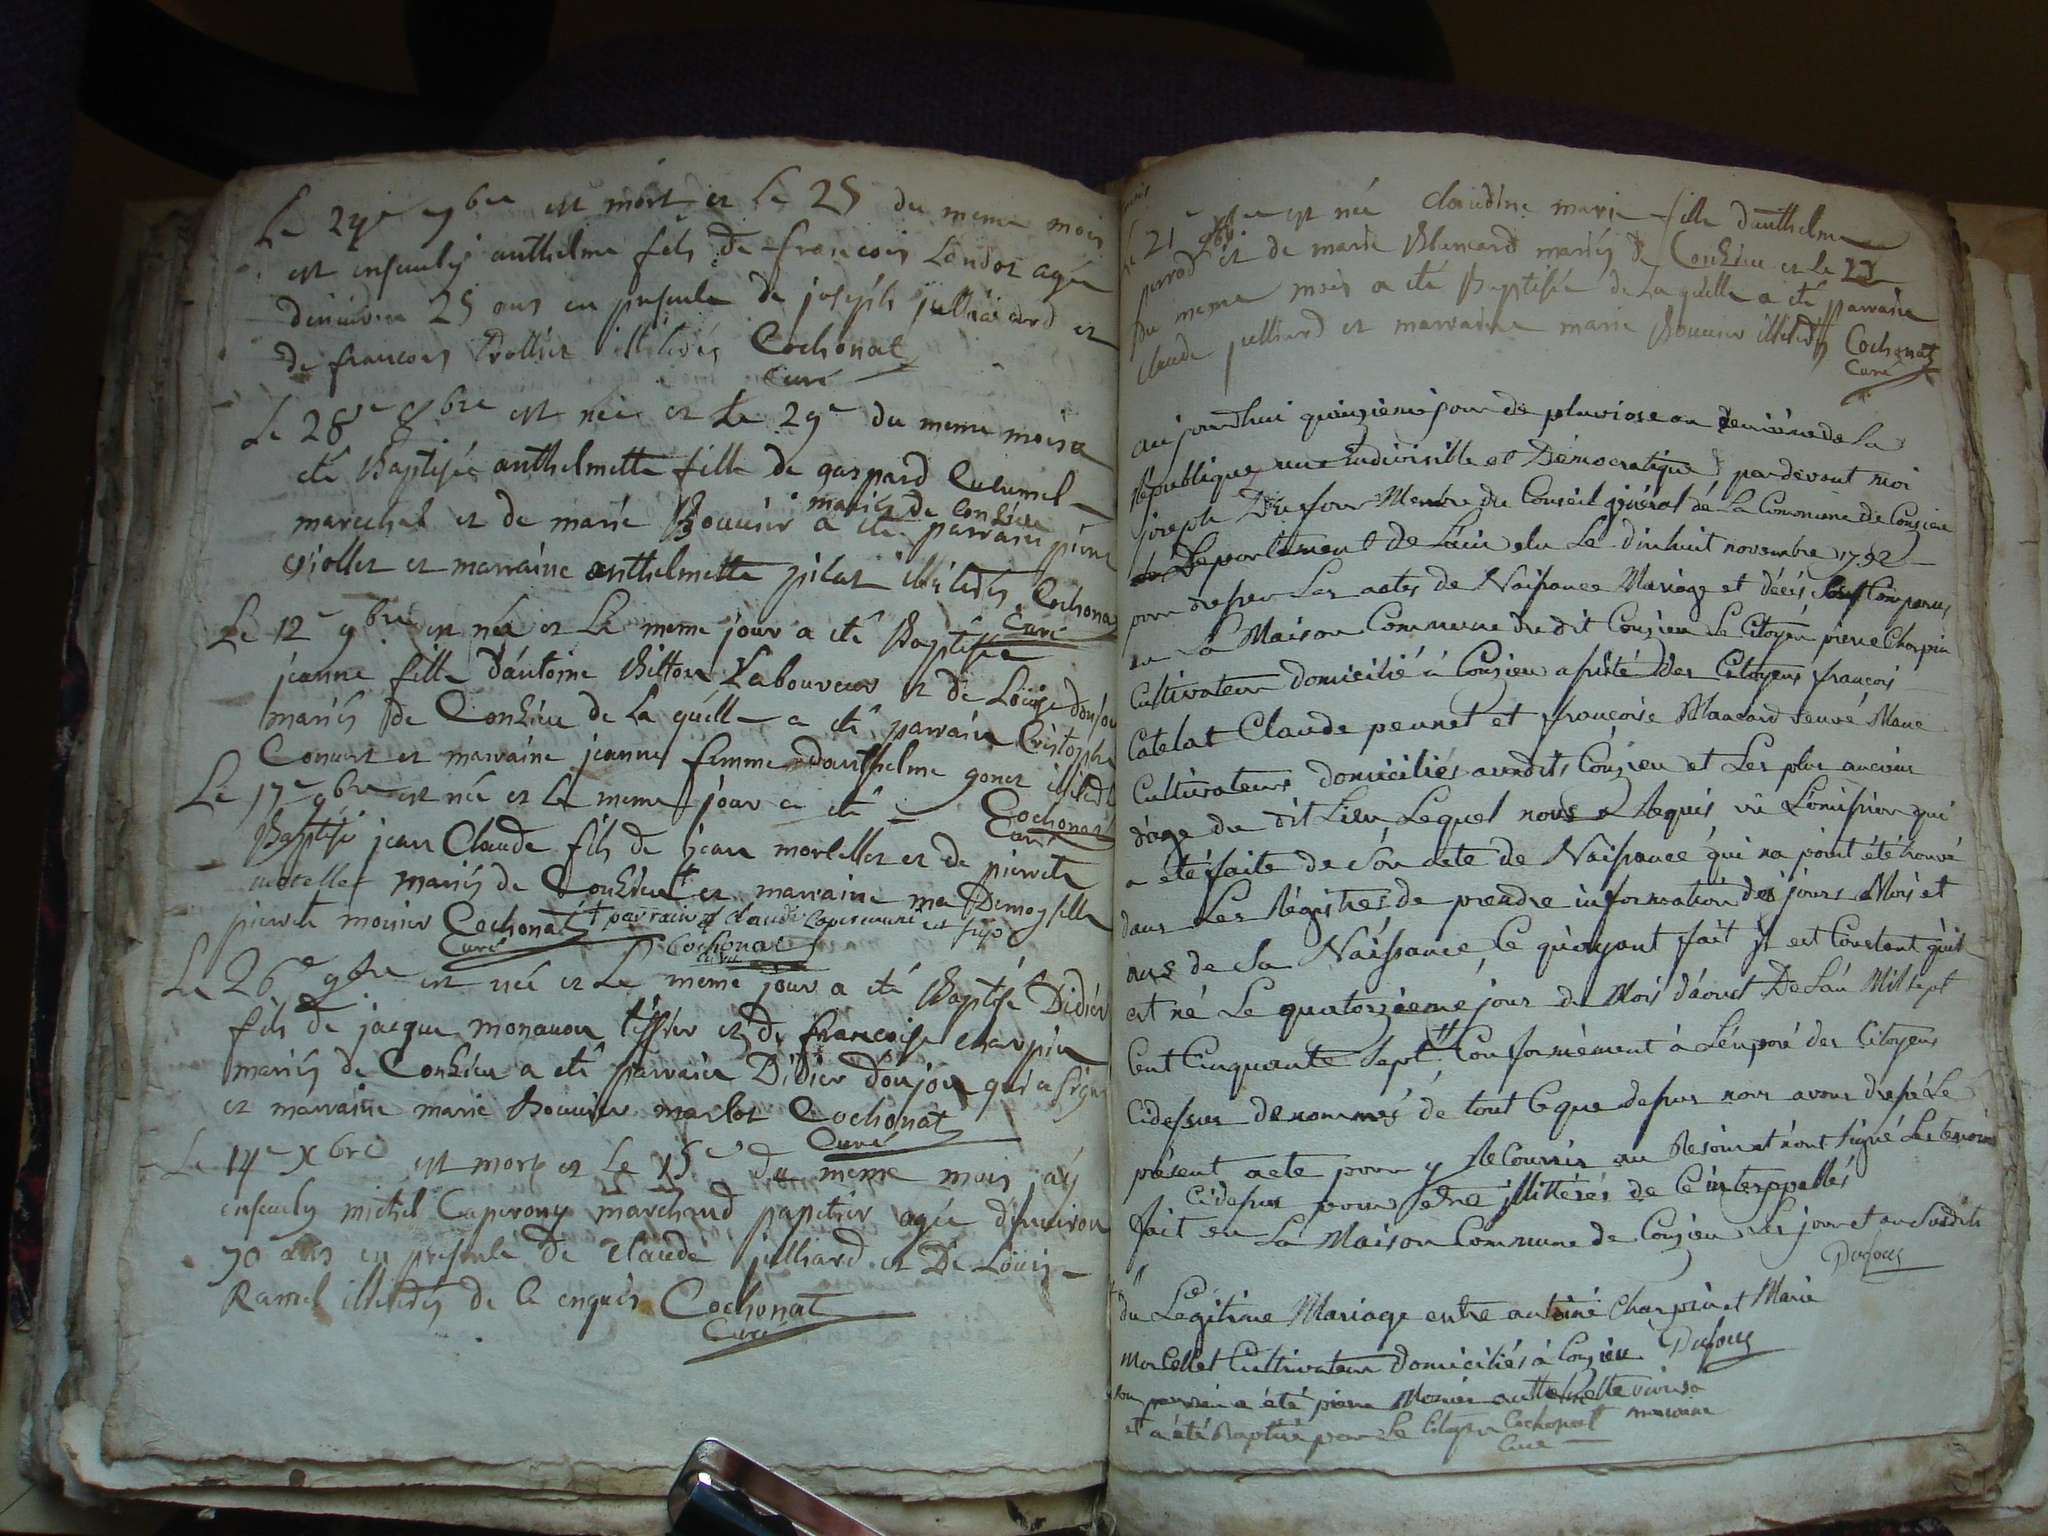 Le 24e 9bre est mort et Le 25 du meme mois
est ensevely anthelme fils de francois Londot agée
denviron 25 ans en presence de joseph julliard et
de francois Trollier illiterés Cochonat
Curé
Le 28e 8bre est née et Le 29e du meme mois a
eté Baptisée anthelmette fille de gaspard
mariés de Conzieu
marechal et de marie Bouvier a eté parrain pierre
Viollet et marraine anthelmette pilat illiterés Cochonat
Curé
Le 12e 9bre est née et Le meme jour a eté Baptisée
jeanne fille d'antoine Bitton Laboureur et de Loüise
mariés de Conzieu de La quelle a eté parrain Cristophe
et marraine jeanne femme d'anthelme gonet
Cochonat
Curé
Le 17e 9bre est née et le meme jour a eté
Baptisé jean Claude fils de jean morcellet et de pierrete
mariés de Conzieu + et marraine ma Demoyselle
pierrete monier Cochonat + parrain claude
Curé
Cochonat
curé
Le 26e 9bre est née et Le meme jour a eté Baptisé Didier
fils de jacque monavon tissier et de francoise charpin
mariés de Conzieu a eté parrain Didier donjou qui a signé
et marraine marie Bouvier marlot Cochonat
Curé
Le 14e Xbre est mort et Le 15e du meme mois j'ay
ensevely michel Caperony marchand papetier agée d'environ
70 ans en presence de Claude julliard et De Loüis
Ramel illiterés de ce enquis Cochonat
Curé
Le 21e est née claudine marie fille d'anthelme
perrod et de marie Blancard mariés de Conzieu et le
Du meme mois a eté Baptisée de La quelle a eté parrain
claude julliard et marraine marie Bouvier illiterés Cochonat
Curé
aujourdhui quinzieme jour de pluviose an deuxième de La
Republique une indivisible et Démocratique, par devant moi
joseph Dufour Membre du Conseil général de La Commune de Conzieu
Departement de Lain elu Le dixhuit novembre 1792
pour dresser Les actes de Naissance Mariage et décés, est Comparu
en La Maison Commune dudit Conzieu Le Citoyen pierre Charpin
Cultivateur domicilié à Conzieu assisté des Citoyens françois
Catelat Claude pennet et françoise Blancard veuve Mane
Cultivateurs domiciliés audit Conzieu et Les plus anciens
d'age du dit Lieu Lequel nous a Requis vû L'omission qui
a été faite de Son acte de Naissance qui na point été trouvé
dans Les Régistres de prendre information des jours Mois et
ans de Sa Naissance, Ce quayant fait il est Constant quil
est né Le quatorzieme jour du Mois d'aoust De L'an Mil sept
Cent Cinquante Sept, # Conformément à L'exposé des Citoyens
Cidessus denommés de tout Ce que dessus nous avons dressé Le
présent acte pour y Recourir au Besoin et n'ont signé Les temoins
Cidessus pour etre illittérés de Ce interppellés
fait en La Maison Commune de Conzieu Les jour et an Susdits
Dufour
# du Légitime Mariage entre antoine Charpin et Marie
Morcellet Cultivateurs domiciliés à Conzieu Dufour
son parrein a été pierre Monier anthelmette
marraine
et a été Baptisé par Le Citoyen Cochonat
Curé